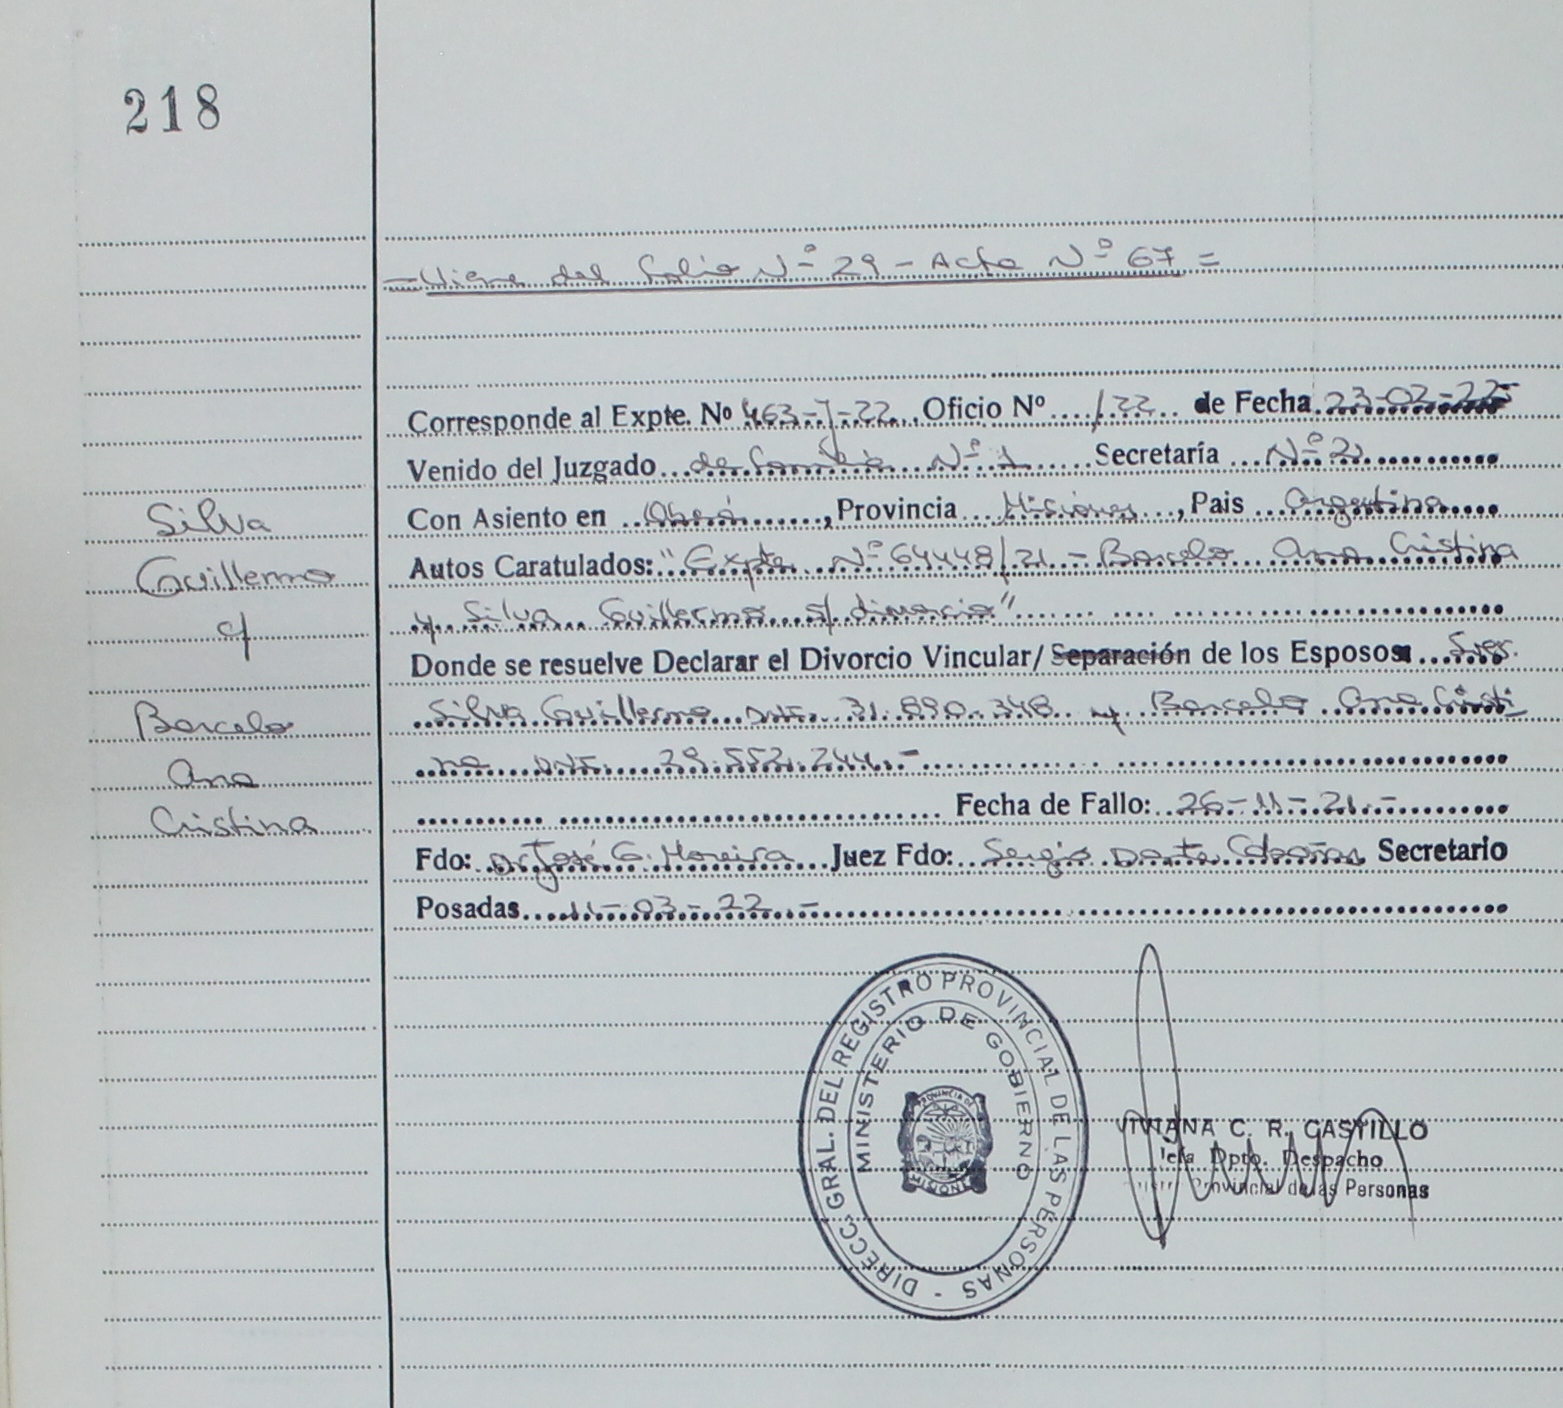 218
- Viene del folio Nº 29 - Acta Nº 67 =
Corresponde al Expte. Nº 463-J-22 Oficio Nº /22 de Fecha 23-02-22
Venido del Juzgado de familia Nº 1 Secretaría Nº 2
Con Asiento en Oberá, Provincia Misiones, Pais Argentina
Autos Caratulados: "Expte Nº 64448/21 - Barcelo Ana Cristina
y Silva Guillermo s/ divorcio"
Donde se resuelve Declarar el Divorcio Vincular/ Separación de los Esposos Sres.
Silva Guillermo DNI. 31.890.348 y Barcelo Ana Cristi
na DNI. 29.552.244.-
Fecha de Fallo: 26-11-21.-
Fdo: Dr José G. Moreira Juez Fdo: Sergio Dante Secretario
Posadas 11-03-22.-
Silva
Guillermo
c/
Barcelo
Ana
Cristina
DIRECC. GRAL. DEL REGISTRO PROVINCIAL DE LAS PERSONAS -
MINISTERIO DE GOBIERNO
PROVINCIA DE
MISIONES
VIVIANA C. R. CASTILLO
Jefa Dpto. Despacho
Provincial de las Personas